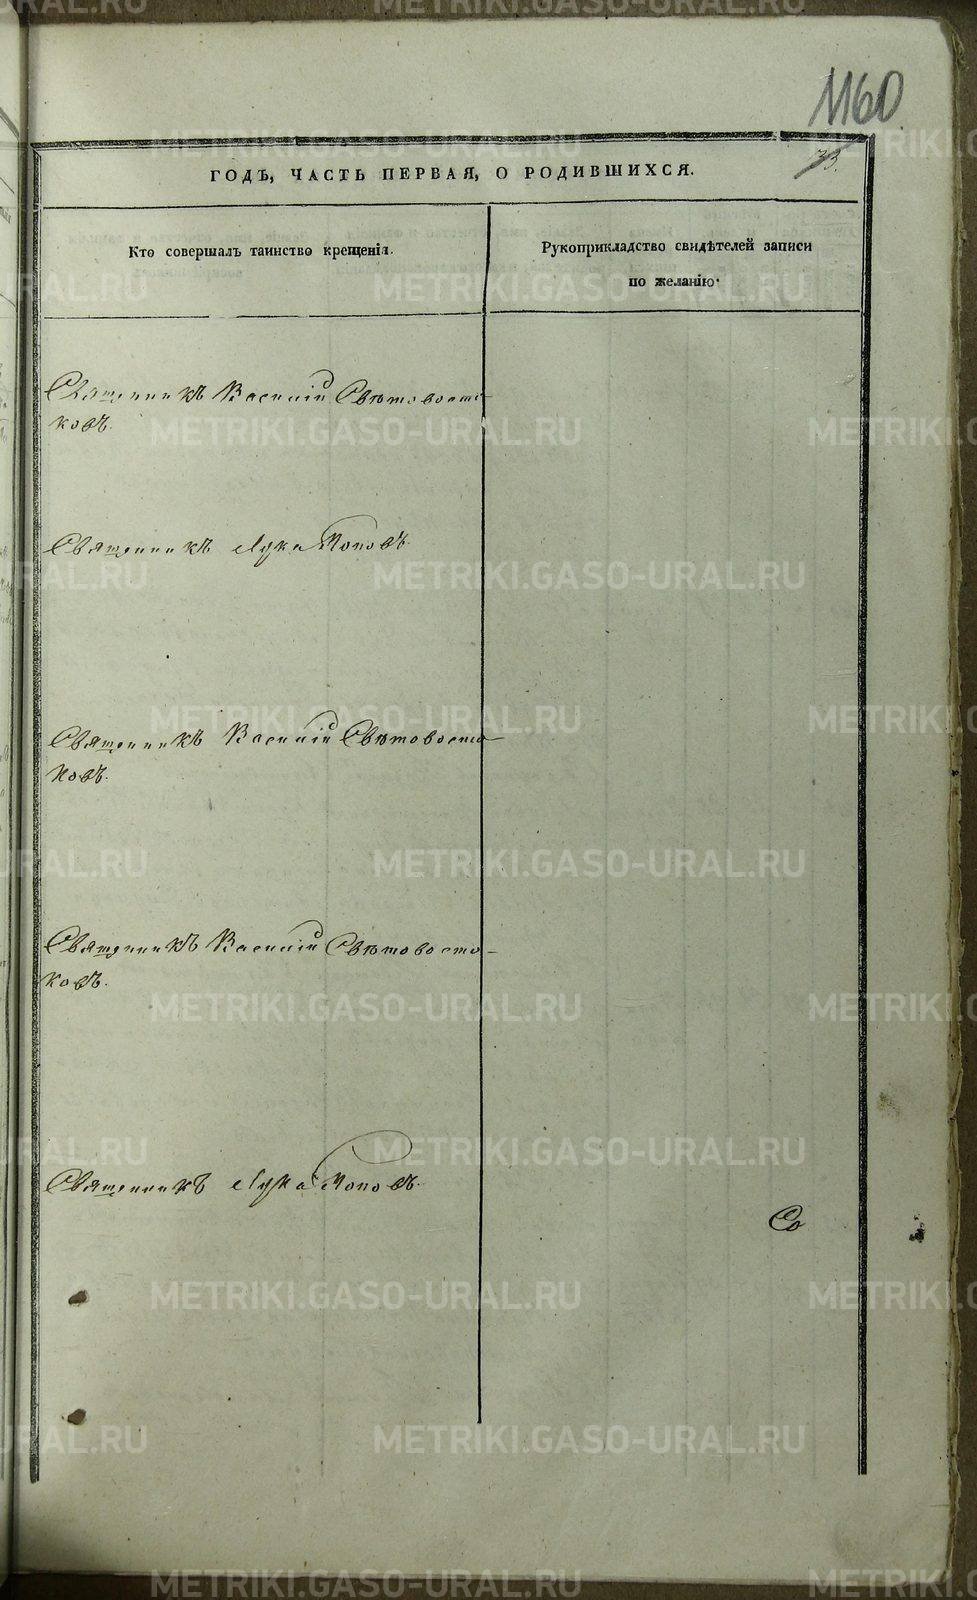 1160
33.
ГОДЪ, ЧАСТЬ ПЕРВАЯ, О РОДИВШИХСЯ.
Кто совершалъ таинство крещенія.
Рукоприкладство свидѣтелей записи
по желанію.
Священникъ Василій Свѣтовосто-
ковъ.
Священникъ Лука Поповъ.
Священникъ Василій Свѣтовосто-
ковъ.
Священникъ Василій Свѣтовосто-
ковъ.
Священникъ Лука Поповъ.
Со
METRIKI.GASO-URAL.RU